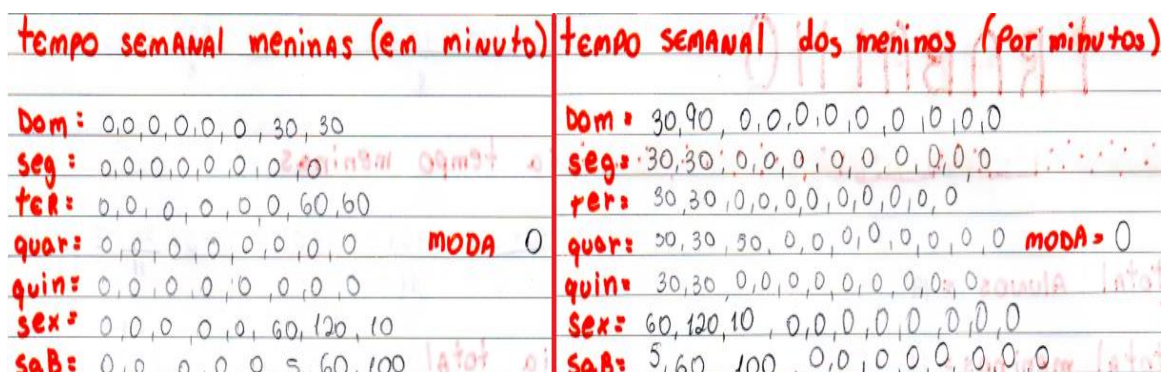 tempo semanal meninas (em minuto)
Dom: 0,0,0,0,0,0,30,30
seg: 0,0,0,0,0,0,0,0
ter: 0,0,0,0,0,0,60,60
quar: 0,0,0,0,0,0,0,0 MODA 0
quin: 0,0,0,0,0,0,0,0
sex: 0,0,0,0,0,60,120,10
saB: 0,0,0,0,0,5,60,100
tempo semanal dos meninos (por minutos)
Dom: 30,90,0,0,0,0,0,0,0,0,0
seg: 30,30,0,0,0,0,0,0,0,0,0
ter: 30,30,0,0,0,0,0,0,0,0
quar: 30,30,0,0,0,0,0,0,0,0 MODA = 0
quin: 30,30,0,0,0,0,0,0,0,0
sex: 60,120,10,0,0,0,0,0,0,0
saB: 5,60,100,0,0,0,0,0,0,0